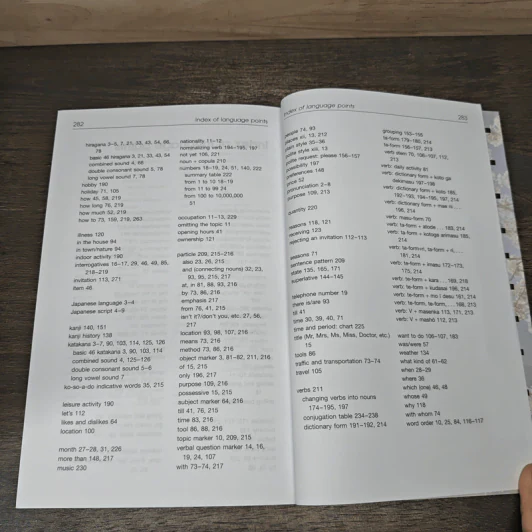 282
index of language points
hiragana 3–5, 7, 21, 33, 43, 54, 66,
78
basic 46 hiragana 3, 21, 33, 43, 54
combined sound 4, 66
double consonant sound 5, 78
long vowel sound 7, 78
hobby 190
holiday 71, 105
how 45, 58, 219
how long 76, 219
how much 52, 219
how to 73, 159, 218, 263
illness 120
in the house 94
in town/nature 94
indoor activity 190
interrogatives 16–17, 29, 46, 49, 85,
218–219
invitation 113, 271
item 46
Japanese language 3–4
Japanese script 4–9
kanji 140, 151
kanji history 138
katakanas 3–7, 90, 103, 114, 125, 126
basic 46 katakana 3, 90, 103, 114
combined sound 4, 125–126
double consonant sound 5–6
long vowel sound 7
ko-so-a-do indicative words 35, 215
leisure activity 190
let's 112
likes and dislikes 64
location 100
month 27–28, 31, 226
more than 148, 217
music 230
nationality 11–12
nominalising verb 194–195, 197
not yet 168, 221
noun + copula 210
numbers 18–19, 24, 51, 140, 222
summary table 222
from 1 to 10 18–19
from 11 to 99 24
from 100 to 10,000,000
51
occupation 11–13, 229
omitting the topic 11
opening hours 41
ownership 121
particle 209, 215–218
also 23, 26, 215
and (connecting nouns) 32, 23,
93, 95, 215, 217
at, in 81, 88, 93, 216
by 73, 86, 216
emphasis 217
from 76, 41, 215
isn't it?/don't you, etc. 27, 56,
217
location 93, 98, 107, 216
means 73, 216
method 73, 86, 216
object marker 3, 81–82, 211, 216
of 15, 215
only 196, 217
purpose 109, 216
possessive 15, 215
subject marker 64, 216
till 41, 76, 215
time 83, 216
tool 86, 88, 216
topic marker 10, 209, 215
verbal question marker 14, 16,
19, 24, 107
with 73–74, 217
index of language points
283
people 74, 93
212
style 35–36
13
request: please 156–157
197
148
price 52
pronunciation 2–8
purpose 109, 213
quantity 220
reasons 118, 121
receiving 123
rejecting an invitation 112–113
seasons 71
sentence pattern 209
state 135, 165, 171
superlative 144–145
telephone number 19
there is/are 93
till 41
time 30, 39, 40, 71
time and period: chart 225
title (Mr, Mrs, Ms, Miss, Doctor, etc.)
15
tools 86
traffic and transportation 73–74
travel 105
verbs 211
changing verbs into nouns
174–195, 197
conjugation table 234–238
dictionary form 191–192, 214
grouping 155–156
te-form 179–180, 214
te-form 156–157, 213
verb stem 70, 106–107, 110,
213
verb: daily activity 81
verb: dictionary form + koto ga
dekimasu 197–198
verb: dictionary form + koto 189,
192–193, 194–195, 197, 214
verb: dictionary form + mae ni
196, 214
verb: masu-form 70
verb: ta-form + atode 189, 214
verb: ta-form + kotoga arimasu 185,
214
181, 214
verb: te-form + imasu 172–173,
175, 214
verb: te-form + kara 169, 218
verb: te-form + kudasai 196, 214
verb: te-form + mo i desu 161, 214
verb: te-form, te-form, 169, 213
verb: V + masenka 113, 171, 213
verb: V + mashō 112, 213
want to do 106–107, 183
was/were 57
weather 134
what kind of 61–62
when 28–29
where 36
which (one) 46, 48
whose 49
why 118
with whom 74
word order 10, 25, 84, 116–117